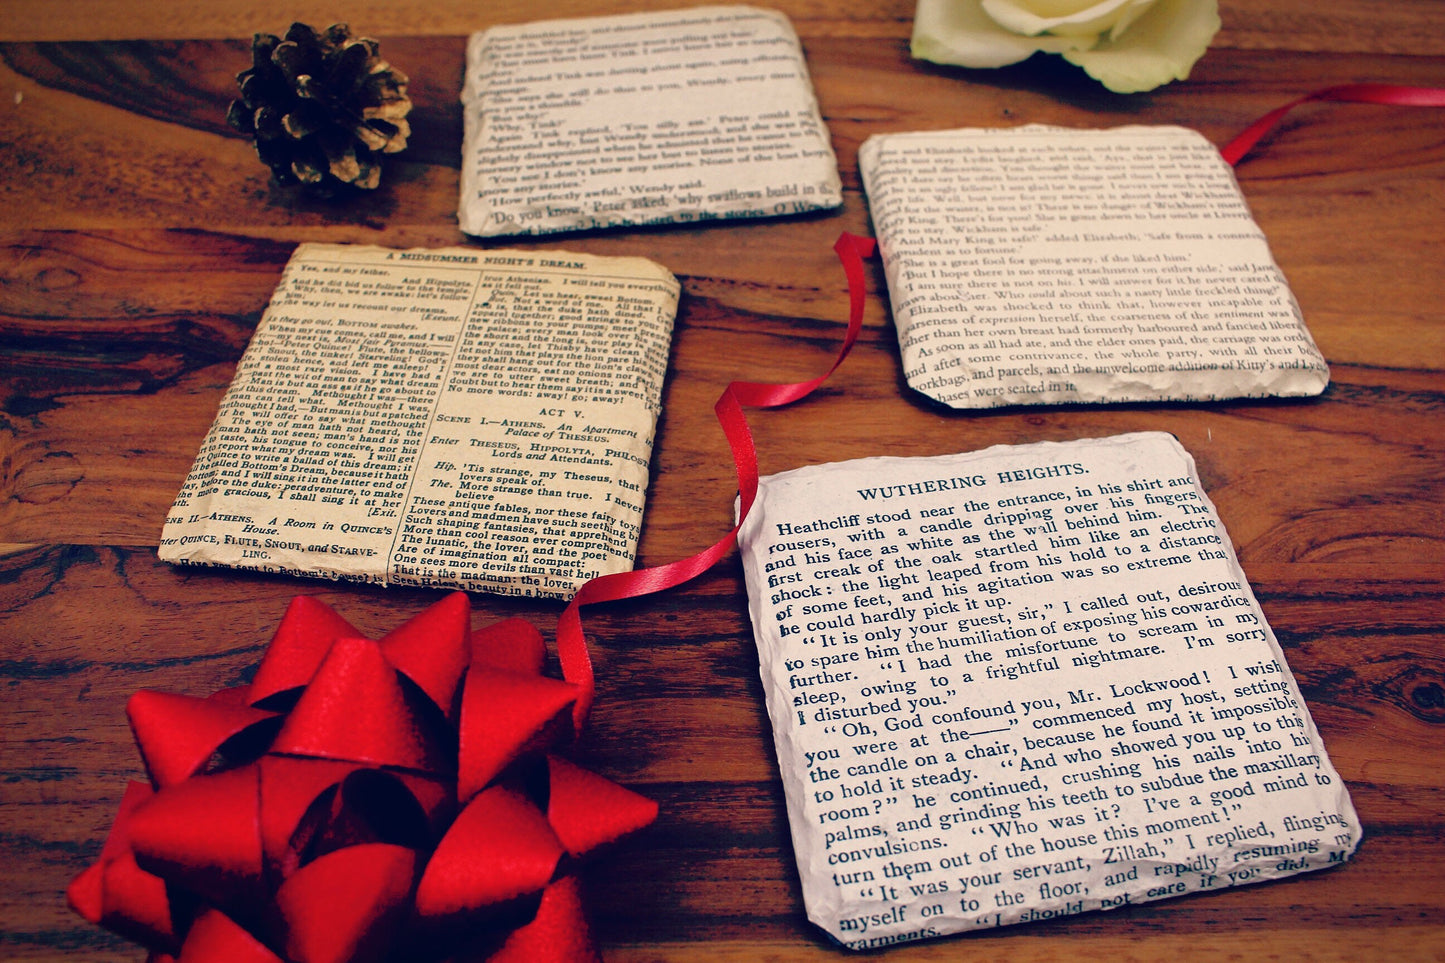 'What is it, Wendy?'
'She says she will do that to you, Wendy, every time I
give you a thimble.'
'But why?'
'Why, Tink?'
Again Tink replied, 'You silly ass.' Peter could not
understand why, but Wendy understood; and she was just
slightly disappointed when he admitted that he came to the
nursery window not to see her but to listen to stories.
'You see I don't know any stories. None of the lost boys
know any stories.'
'How perfectly awful,' Wendy said.
'Do you know,' Peter asked, 'why swallows build in the
and Elizabeth looked at each other, and the waiter was told
need not stay. Lydia laughed, and said, 'Aye, that is just like
to stay. Wickham is safe.'
'And Mary King is safe!' added Elizabeth, 'Safe from a connec
imprudent as to fortune.'
'She is a great fool for going away, if she liked him.'
'But I hope there is no strong attachment on either side,' said Jane
'I am sure there is not on his. I will answer for it he never cared
straws about her. Who could about such a nasty little freckled thing?'
Elizabeth was shocked to think that, however incapable of
coarseness of expression herself, the coarseness of the sentiment was
other than her own breast had formerly harboured and fancied liberal
As soon as all had ate, and the elder ones paid, the carriage was ord
and after some contrivance, the whole party, with all their bo
workbags, and parcels, and the unwelcome addition of Kitty's and Lyd
chases were seated in it.
A MIDSUMMER NIGHT'S DREAM.
Yes, and my father.
And Hippolyta.
And he did bid us follow to the temple.
Why, then, we are awake: let's follow
him;
by the way let us recount our dreams.
[Exeunt.
As they go out, BOTTOM awakes.
When my cue comes, call me, and I will
my next is, Most fair Pyramus.—
ho!—Peter Quince! Flute, the bellows-
Snout, the tinker! Starveling! God's
stolen hence, and left me asleep! I
had a most rare vision. I have had a
—past the wit of man to say what dream
—Man is but an ass if he go about to
this dream. Methought I was—there
man can tell what. Methought I was,
methought I had,—But man is but a patched
if he will offer to say what methought
The eye of man hath not heard, the
man hath not seen; man's hand is not
to taste, his tongue to conceive, nor his
to report what my dream was. I will get
Quince to write a ballad of this dream; it
be called Bottom's Dream, because it hath
bottom; and I will sing it in the latter end of
play, before the duke: peradventure, to make
the more gracious, I shall sing it at her
[Exit.
II.—ATHENS. A Room in QUINCE'S
House.
QUINCE, FLUTE, SNOUT, and STARVE-
LING.
Have you sent to Bottom's house? is
true Athenian. I will tell you everything
as it fell out.
Quin. Let us hear, sweet Bottom.
Bot. Not a word of me. All that I
you is, that the duke hath dined.
apparel together; good strings to your
new ribbons to your pumps; meet presen
the palace; every man look over his
the short and the long is, our play is pre
In any case, let Thisby have clean
let not him that plays the lion pare his
they shall hang out for the lion's claws
most dear actors, eat no onions nor
we are to utter sweet breath; and I
doubt but to hear them say it is a sweet
No more words: away! go; away!
ACT V.
SCENE I.—ATHENS. An Apartment in
Palace of THESEUS.
Enter THESEUS, HIPPOLYTA, PHILOS
Lords and Attendants.
Hip. 'Tis strange, my Theseus, that
lovers speak of.
The. More strange than true. I never
believe
These antique fables, nor these fairy toys
Lovers and madmen have such seething br
Such shaping fantasies, that apprehend
More than cool reason ever comprehends.
The lunatic, the lover, and the poet
Are of imagination all compact:
One sees more devils than vast hell
That is the madman: the lover,
Sees Helen's beauty in a brow of
WUTHERING HEIGHTS.
Heathcliff stood near the entrance, in his shirt and
trousers, with a candle dripping over his fingers,
and his face as white as the wall behind him. The
first creak of the oak startled him like an electric
shock: the light leaped from his hold to a distance
of some feet, and his agitation was so extreme that
he could hardly pick it up.
"It is only your guest, sir," I called out, desirous
to spare him the humiliation of exposing his cowardice
further. "I had the misfortune to scream in my
sleep, owing to a frightful nightmare. I'm sorry
I disturbed you."
"Oh, God confound you, Mr. Lockwood! I wish
you were at the——" commenced my host, setting
the candle on a chair, because he found it impossible
to hold it steady. "And who showed you up to this
room?" he continued, crushing his nails into his
palms, and grinding his teeth to subdue the maxillary
convulsions. "Who was it? I've a good mind to
turn them out of the house this moment!"
"It was your servant, Zillah," I replied, flinging
myself on to the floor, and rapidly resuming my
garments. "I should not care if you did, Mr